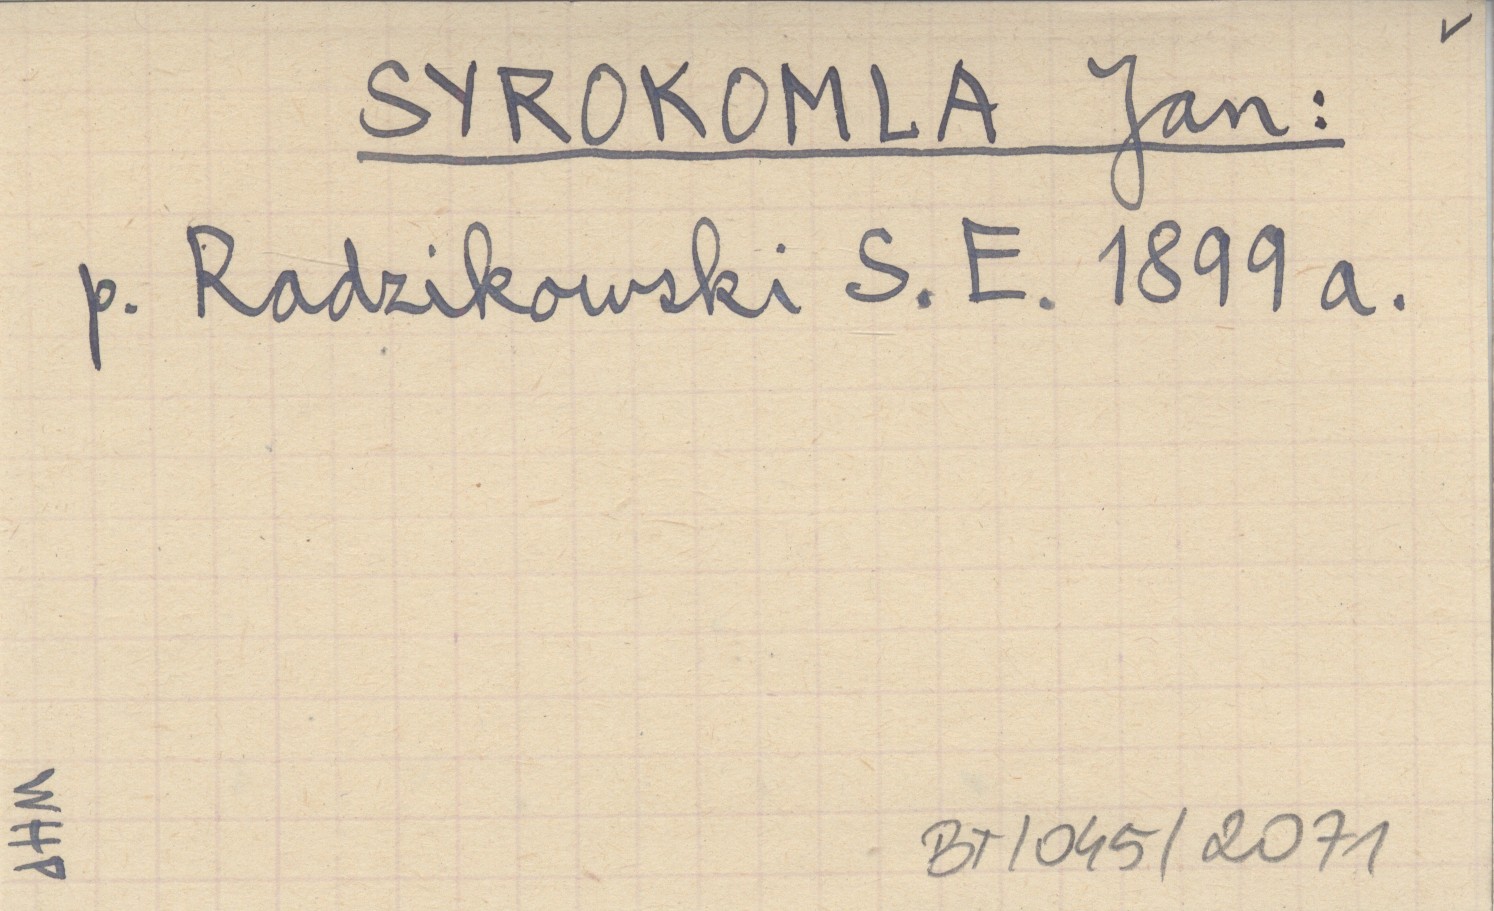 SYROKOMLA Jan:
p. Radzikowski S. E. 1899 a.
WHP
BT/045/2071